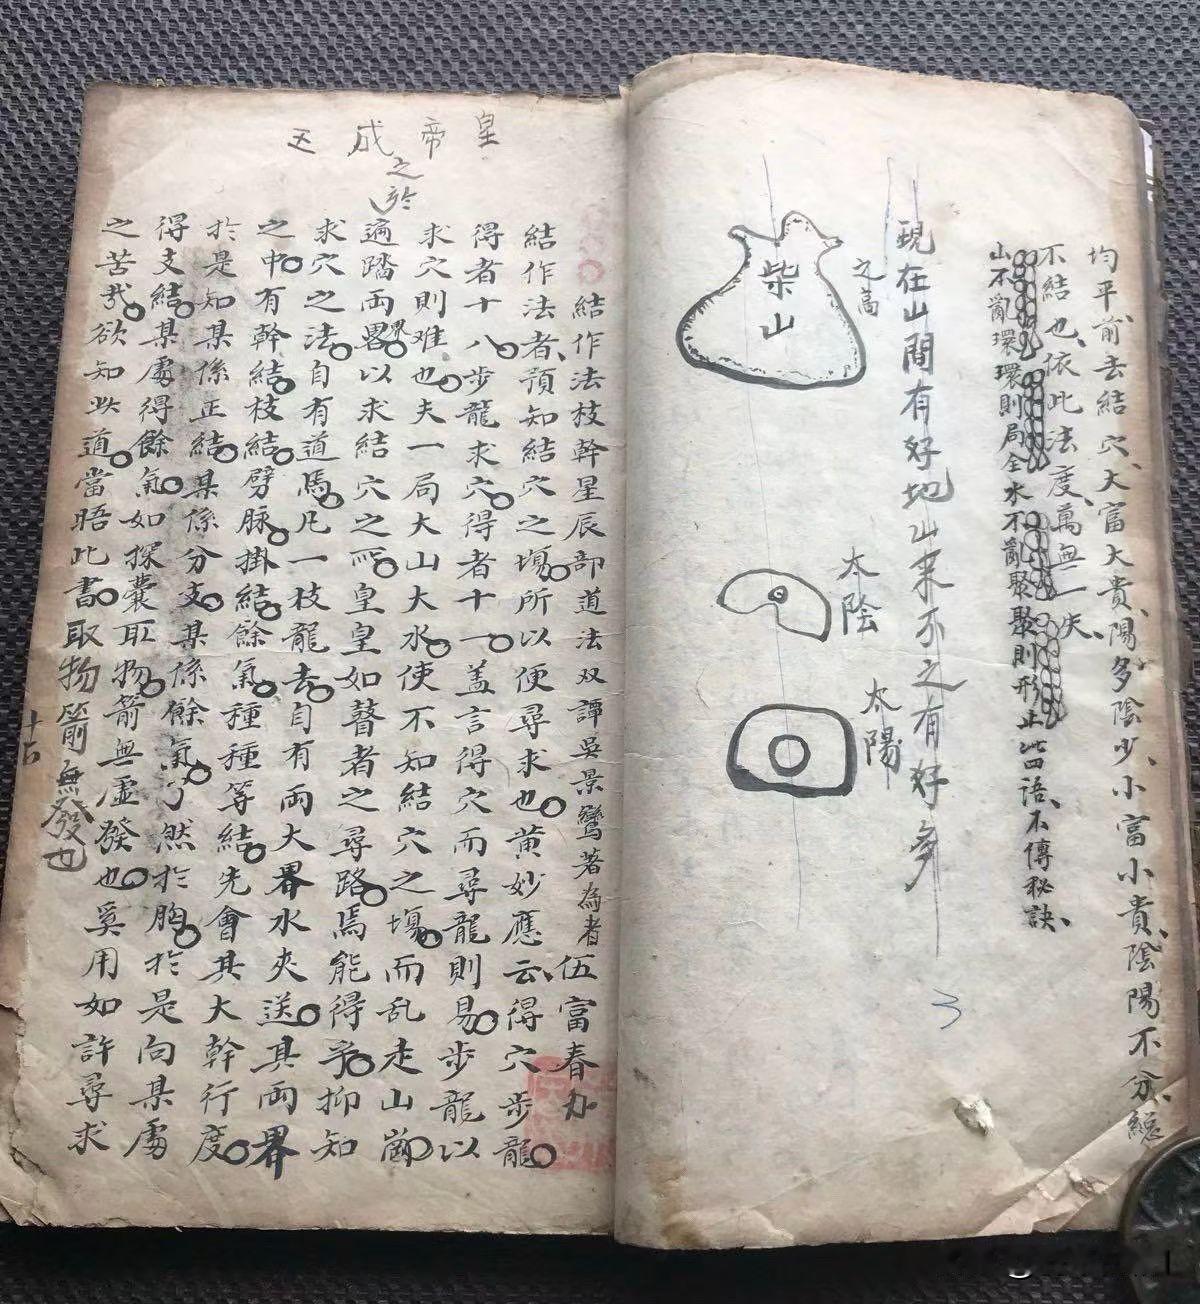 均平前去結穴大富大貴、陽多陰少、小富小貴、陰陽不分、總
不結也、依此法度、萬無一失、
山不亂環環則局全水不亂聚聚則形止此四語、不傳秘訣、
現在山間有好地山來不之有好多
之高
柴山
太陰
太陽
3
皇帝成王
結作法枝幹星辰部道法双譚吳景鸞著為者伍富春办
結作法者、預知結穴之塲所以便尋求也黄妙應云、得穴步龍
得者十八步龍求穴得者十一盖言得穴而尋龍則易步龍以
求穴則难也夫一局大山大水使不知結穴之塲而乱走山崗
於之
遍踏両界以求結穴之所皇皇如瞽者之尋路焉能得乎抑知
求穴之法自有道焉凡一枝龍去自有両大界水夾送其両界
之中有幹結枝結劈脉掛結餘氣種種等結先會其大幹行度
於是知某係正結某係分支某係餘氣了然於胸於是向某處
得支結某處得餘氣如探囊取物箭無虛發也奚用如許尋求
之苦哉欲知此道當晤此書取物箭無發也